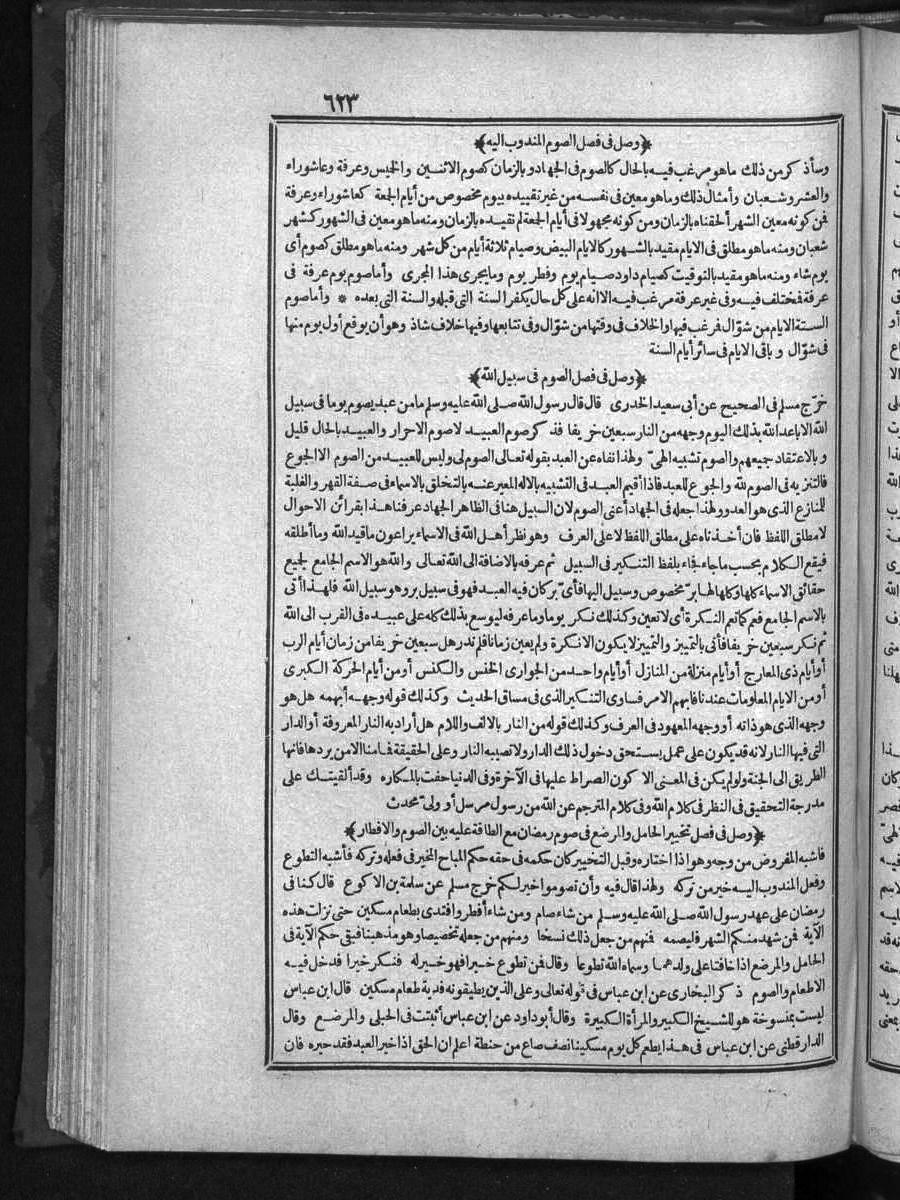 ٦٢٣
﴿وصل فى فصل الصوم المندوب اليه﴾
وسأذكر من ذلك ماهو مرغب فيه بالحال كالصوم فى الجهاد وبالزمان كصوم الاثنين والخميس وعرفة وعاشوراء
والعشر وشعبان وأمثال ذلك وماهو معين فى نفسه من غير تقييده بيوم مخصوص من أيام الجمعة كعاشوراء وعرفة
فمن كونه معين الشهر ألحقناه بالزمان ومن كونه مجهولا فى أيام الجمعة لم نقيده بالزمان ومنه ماهو معين فى الشهور كشهر
شعبان ومنه ماهو مطلق فى الايام مقيد بالشهور كالايام البيض وصيام ثلاثة أيام من كل شهر ومنه ماهو مطلق كصوم أى
يوم شاء ومنه ماهو مقيد بالتوقيت كصيام داود صيام يوم وفطر يوم ومايجرى هذا المجرى وأماصوم يوم عرفة فى
عرفة فمختلف فيه وفى غير عرفة مرغب فيه الاانه على كل حال يكفر السنة التى قبله والسنة التى بعده * وأماصوم
الستة الايام من شوّال فمرغب فيها والخلاف فى وقتها من شوّال وفى تتابعها وفيها خلاف شاذ وهو أن يوقع أول يوم منها
فى شوّال وباقى الايام فى سائر أيام السنة
﴿وصل فى فصل الصوم فى سبيل الله﴾
خرّج مسلم فى الصحيح عن أبى سعيد الخدرى قال قال رسول الله صلى الله عليه وسلم مامن عبد يصوم يوما فى سبيل
الله الاباعد الله بذلك اليوم وجهه من النار سبعين خريفا فذكر صوم العبيد لاصوم الاحرار والعبيد بالحال قليل
وبالاعتقاد جميعهم والصوم تشبيه الهىّ ولهذا نفاه عن العبد بقوله تعالى الصوم لى وليس للعبيد من الصوم الاالجوع
فالتنزيه فى الصوم لله والجوع للعبد فاذا أقيم العبد فى التشبيه بالاله المعبر عنه بالتخلق بالاسماء فى صفة القهر والغلبة
للمنازع الذى هو العدو ولهذا جعله فى الجهاد أعنى الصوم لان السبيل هنا فى الظاهر الجهاد عرفنا هذا بقرائن الاحوال
لامطلق اللفظ فان أخذناه على مطلق اللفظ لاعلى العرف وهو نظر أهل الله فى الاسماء يراعون ماقيد الله وماأطلقه
فيقع الكلام بحسب ماجاء فجاء بلفظ التنكير فى السبيل ثم عرفه بالاضافة الى الله تعالى والله هو الاسم الجامع لجميع
حقائق الاسماء كلها وكلها لها برّ مخصوص وسبيل اليها فأىّ بر كان فيه العبد فهو فى سبيل بر وهو سبيل الله فلهذا أتى
بالاسم الجامع فعم كماتعم النكرة أى لاتعين وكذلك نكر يوما وماعرفه ليوسع بذلك كله على عبيده فى القرب الى الله
ثم نكر سبعين خريفا فأتى بالتمييز والتمييز لايكون الانكرة ولم يعين زمانا فلم ندر هل سبعين خريفا من زمان أيام الرب
أوأيام ذى المعارج أوأيام منزلة من المنازل أوأيام واحد من الجوارى الخنس والكنس أومن أيام الحركة الكبرى
أومن الايام المعلومات عندنا فابهم الامر فساوى التنكير الذى فى مساق الحديث وكذلك قوله وجهه أبهمه هل هو
وجهه الذى هو ذاته أووجهه المعهود فى العرف وكذلك قوله من النار بالالف واللام هل أراد به النار المعروفة أوالدار
التى فيها النار لانه قد يكون على عمل يستحق دخول ذلك الدار ولاتصيبه النار وعلى الحقيقة فمامنا الامن يردها فانها
الطريق الى الجنة ولولم يكن فى المعنى الاكون الصراط عليها فى الآخرة وفى الدنيا حفت بالمكاره وقد ألقيتك على
مدرجة التحقيق فى النظر فى كلام الله وفى كلام المترجم عن الله من رسول مرسل أوولىّ محدث
﴿وصل فى فصل تخيير الحامل والمرضع فى صوم رمضان مع الطاقة عليه بين الصوم والافطار﴾
فاشبه المفروض من وجه وهو اذا اختاره وقبل التخيير كان حكمه فى حقه حكم المباح المخير فى فعله وتركه فأشبه التطوع
وفعل المندوب اليه خير من تركه ولهذا قال فيه وأن تصوموا خير لكم خرّج مسلم عن سلمة بن الاكوع قال كنا فى
رمضان على عهد رسول الله صلى الله عليه وسلم من شاء صام ومن شاء أفطر وافتدى بطعام مسكين حتى نزلت هذه
الآية فمن شهد منكم الشهر فليصمه فمنهم من جعل ذلك نسخا ومنهم من جعله تخصيصا وهو مذهبنا فبقى حكم الآية فى
الحامل والمرضع اذا خافتا على ولدهما وسماه الله تطوعا وقال فمن تطوع خيرا فهو خير له فنكر خيرا فدخل فيه
الاطعام والصوم ذكر البخارى عن ابن عباس فى قوله تعالى وعلى الذين يطيقونه فدية طعام مسكين قال ابن عباس
ليست بمنسوخة هو للشيخ الكبير والمرأة الكبيرة وقال أبو داود عن ابن عباس أثبتت فى الحبلى والمرضع وقال
الدارقطنى عن ابن عباس فى هذا يطعم كل يوم مسكينا نصف صاع من حنطة اعلم ان الحق اذا خير العبد فقد حيره فان